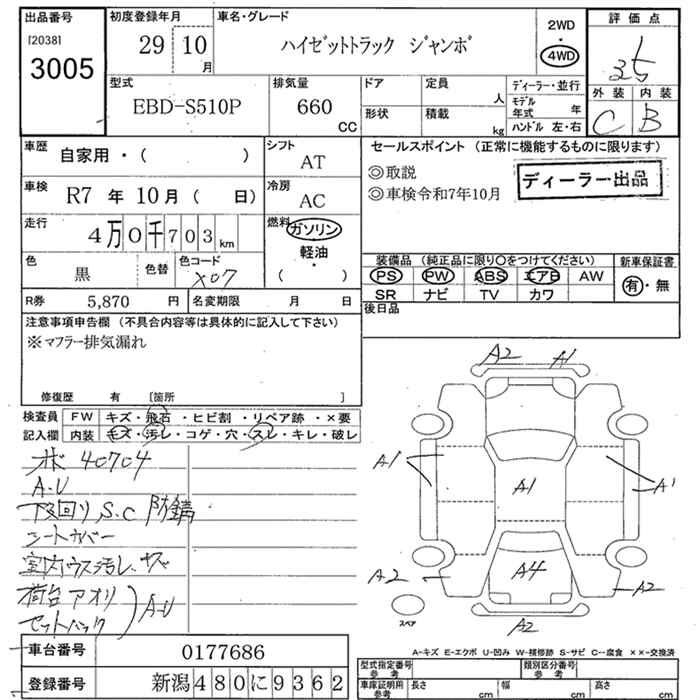 出品番号
[2038]
3005
初度登録年月
29 10月
車名・グレード
ハイゼットトラック ジャンボ
2WD
・
4WD
評価点
3.5
外装 内装
C B
型式
EBD-S510P
排気量
660
CC
ドア
形状
定員
人
積載
kg
ディーラー・並行
モデル年式 年
ハンドル 左・右
車歴
自家用・( )
シフト
AT
車検
R7 年 10月 ( 日)
冷房
AC
走行
4万0千703km
燃料
ガソリン
軽油・
( )
色
黒
色替
色コード
X07
R券 5,870 円
名変期限 月 日
セールスポイント (正常に機能するものに限ります)
◎取説
◎車検令和7年10月
ディーラー出品
装備品 (純正品に限り○をつけてください)
PS PW ABS エアB AW
SR ナビ TV カワ
新車保証書
有・無
後日品
注意事項申告欄 (不具合内容等は具体的に記入して下さい)
※マフラー排気漏れ
修復歴 有 [箇所 ]
検査員
記入欄
FW キズ・飛石・ヒビ割・リペア跡・×要
内装 キズ・汚レ・コゲ・穴・スレ・キレ・破レ
40704
A・U
下回り S.C 防錆
シートカバー
室内ウス汚レ、キズ
荷台アオリ
セットバック
A・U
A2 A1
A1 A1 A1
A2 A4 A2
A2
スペア
A-キズ E-エクボ U-凹み W-補修跡 S-サビ C-腐食 ××-交換済
車台番号 0177686
登録番号 新潟480に9362
型式指定番号
参考
類別区分番号
参考
車庫証明用
参考
長さ cm 幅 cm 高さ cm